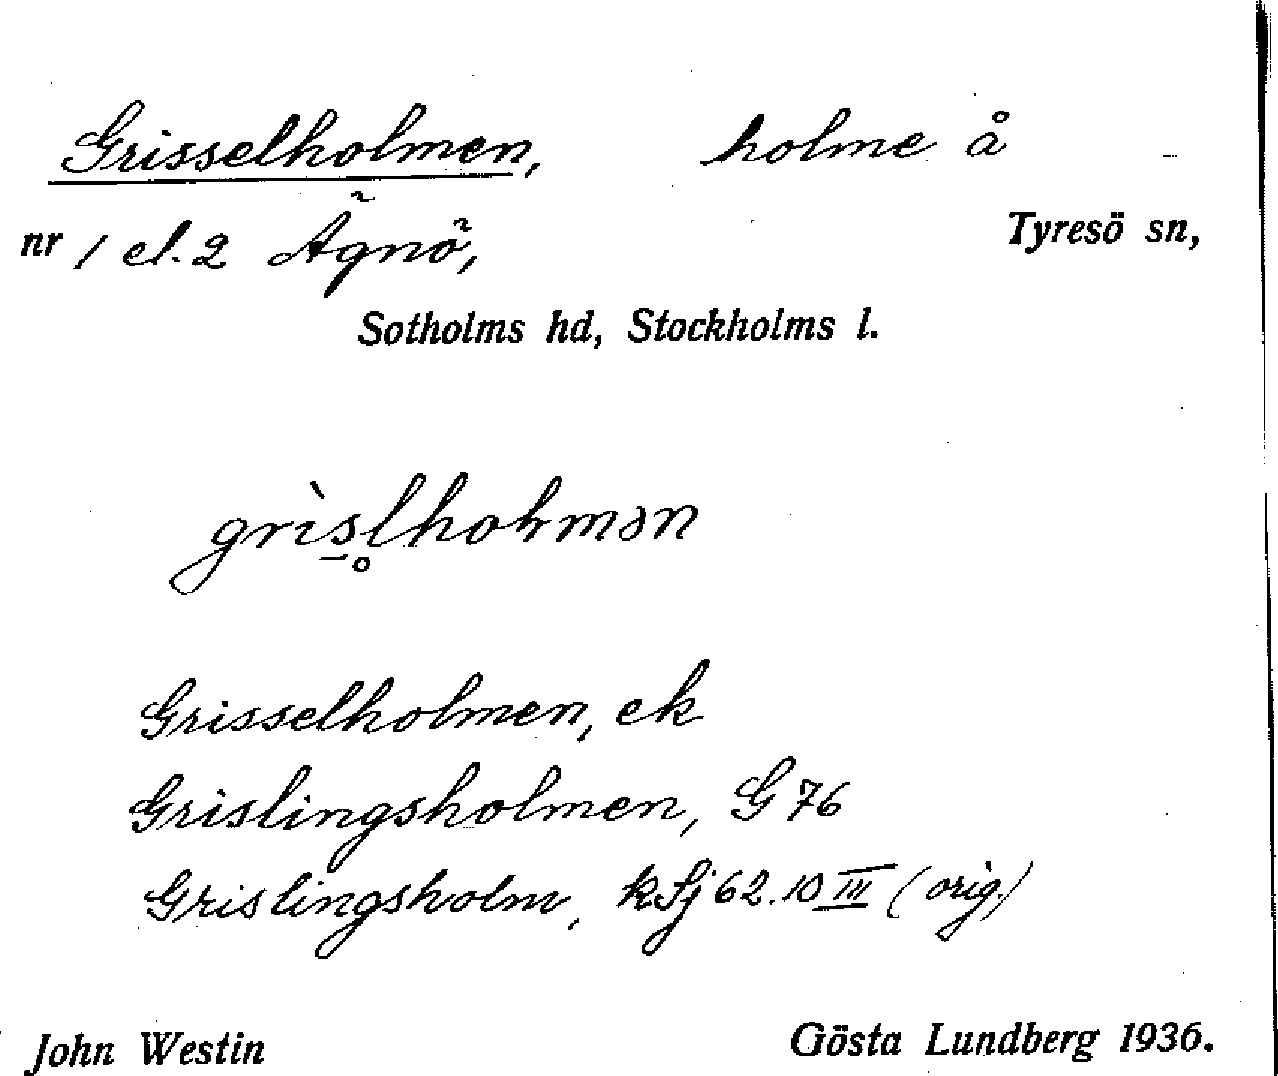 Grisselholmen, holme å
nr 1 el. 2 Ägnö, Tyresö sn,
Sotholms hd, Stockholms l.
grìs̠l̥holmən
Grisselholmen, ek
Grislingsholmen, G 76
Grislingsholm, kSj 62.10 III (orig.)
John Westin Gösta Lundberg 1936.